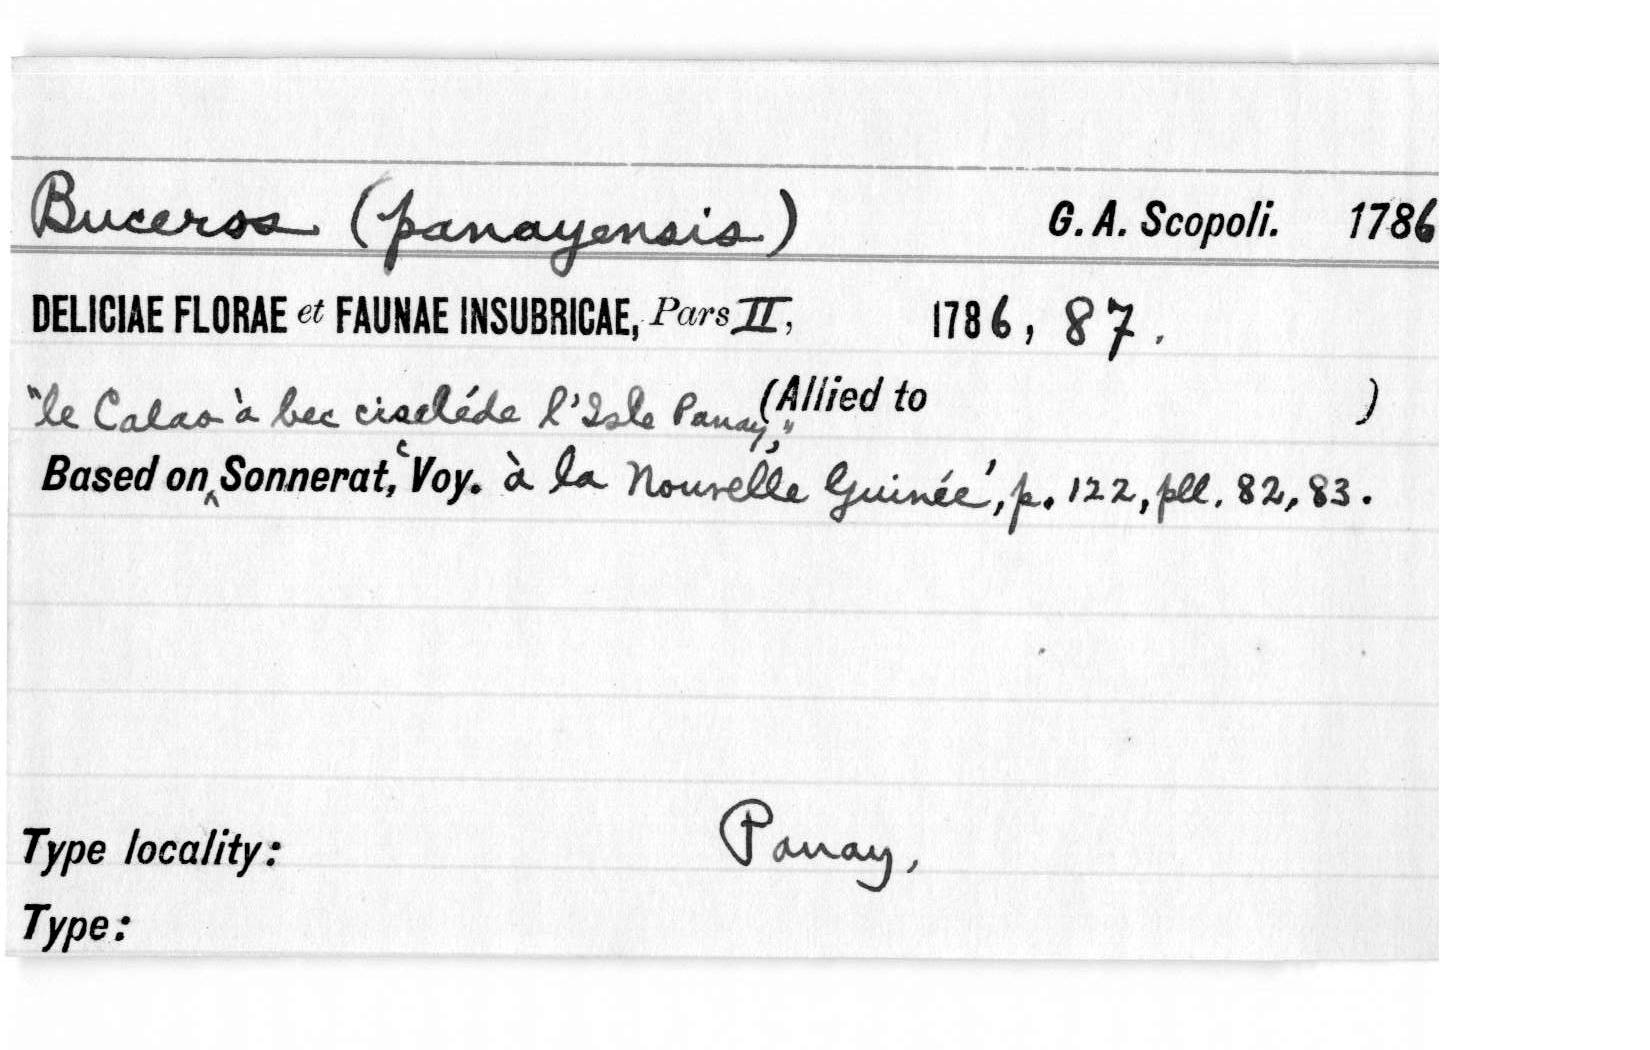 Buceros (panayensis) G. A. Scopoli. 1786
DELICIAE FLORAE et FAUNAE INSUBRICAE, Pars II, 1786, 87.
"le Calao à bec ciseléde l'Isle Panay," (Allied to )
Based on ^ Sonnerat, 'Voy. à la Nouvelle Guinée', p. 122, pll. 82, 83.
Type locality: Panay,
Type: